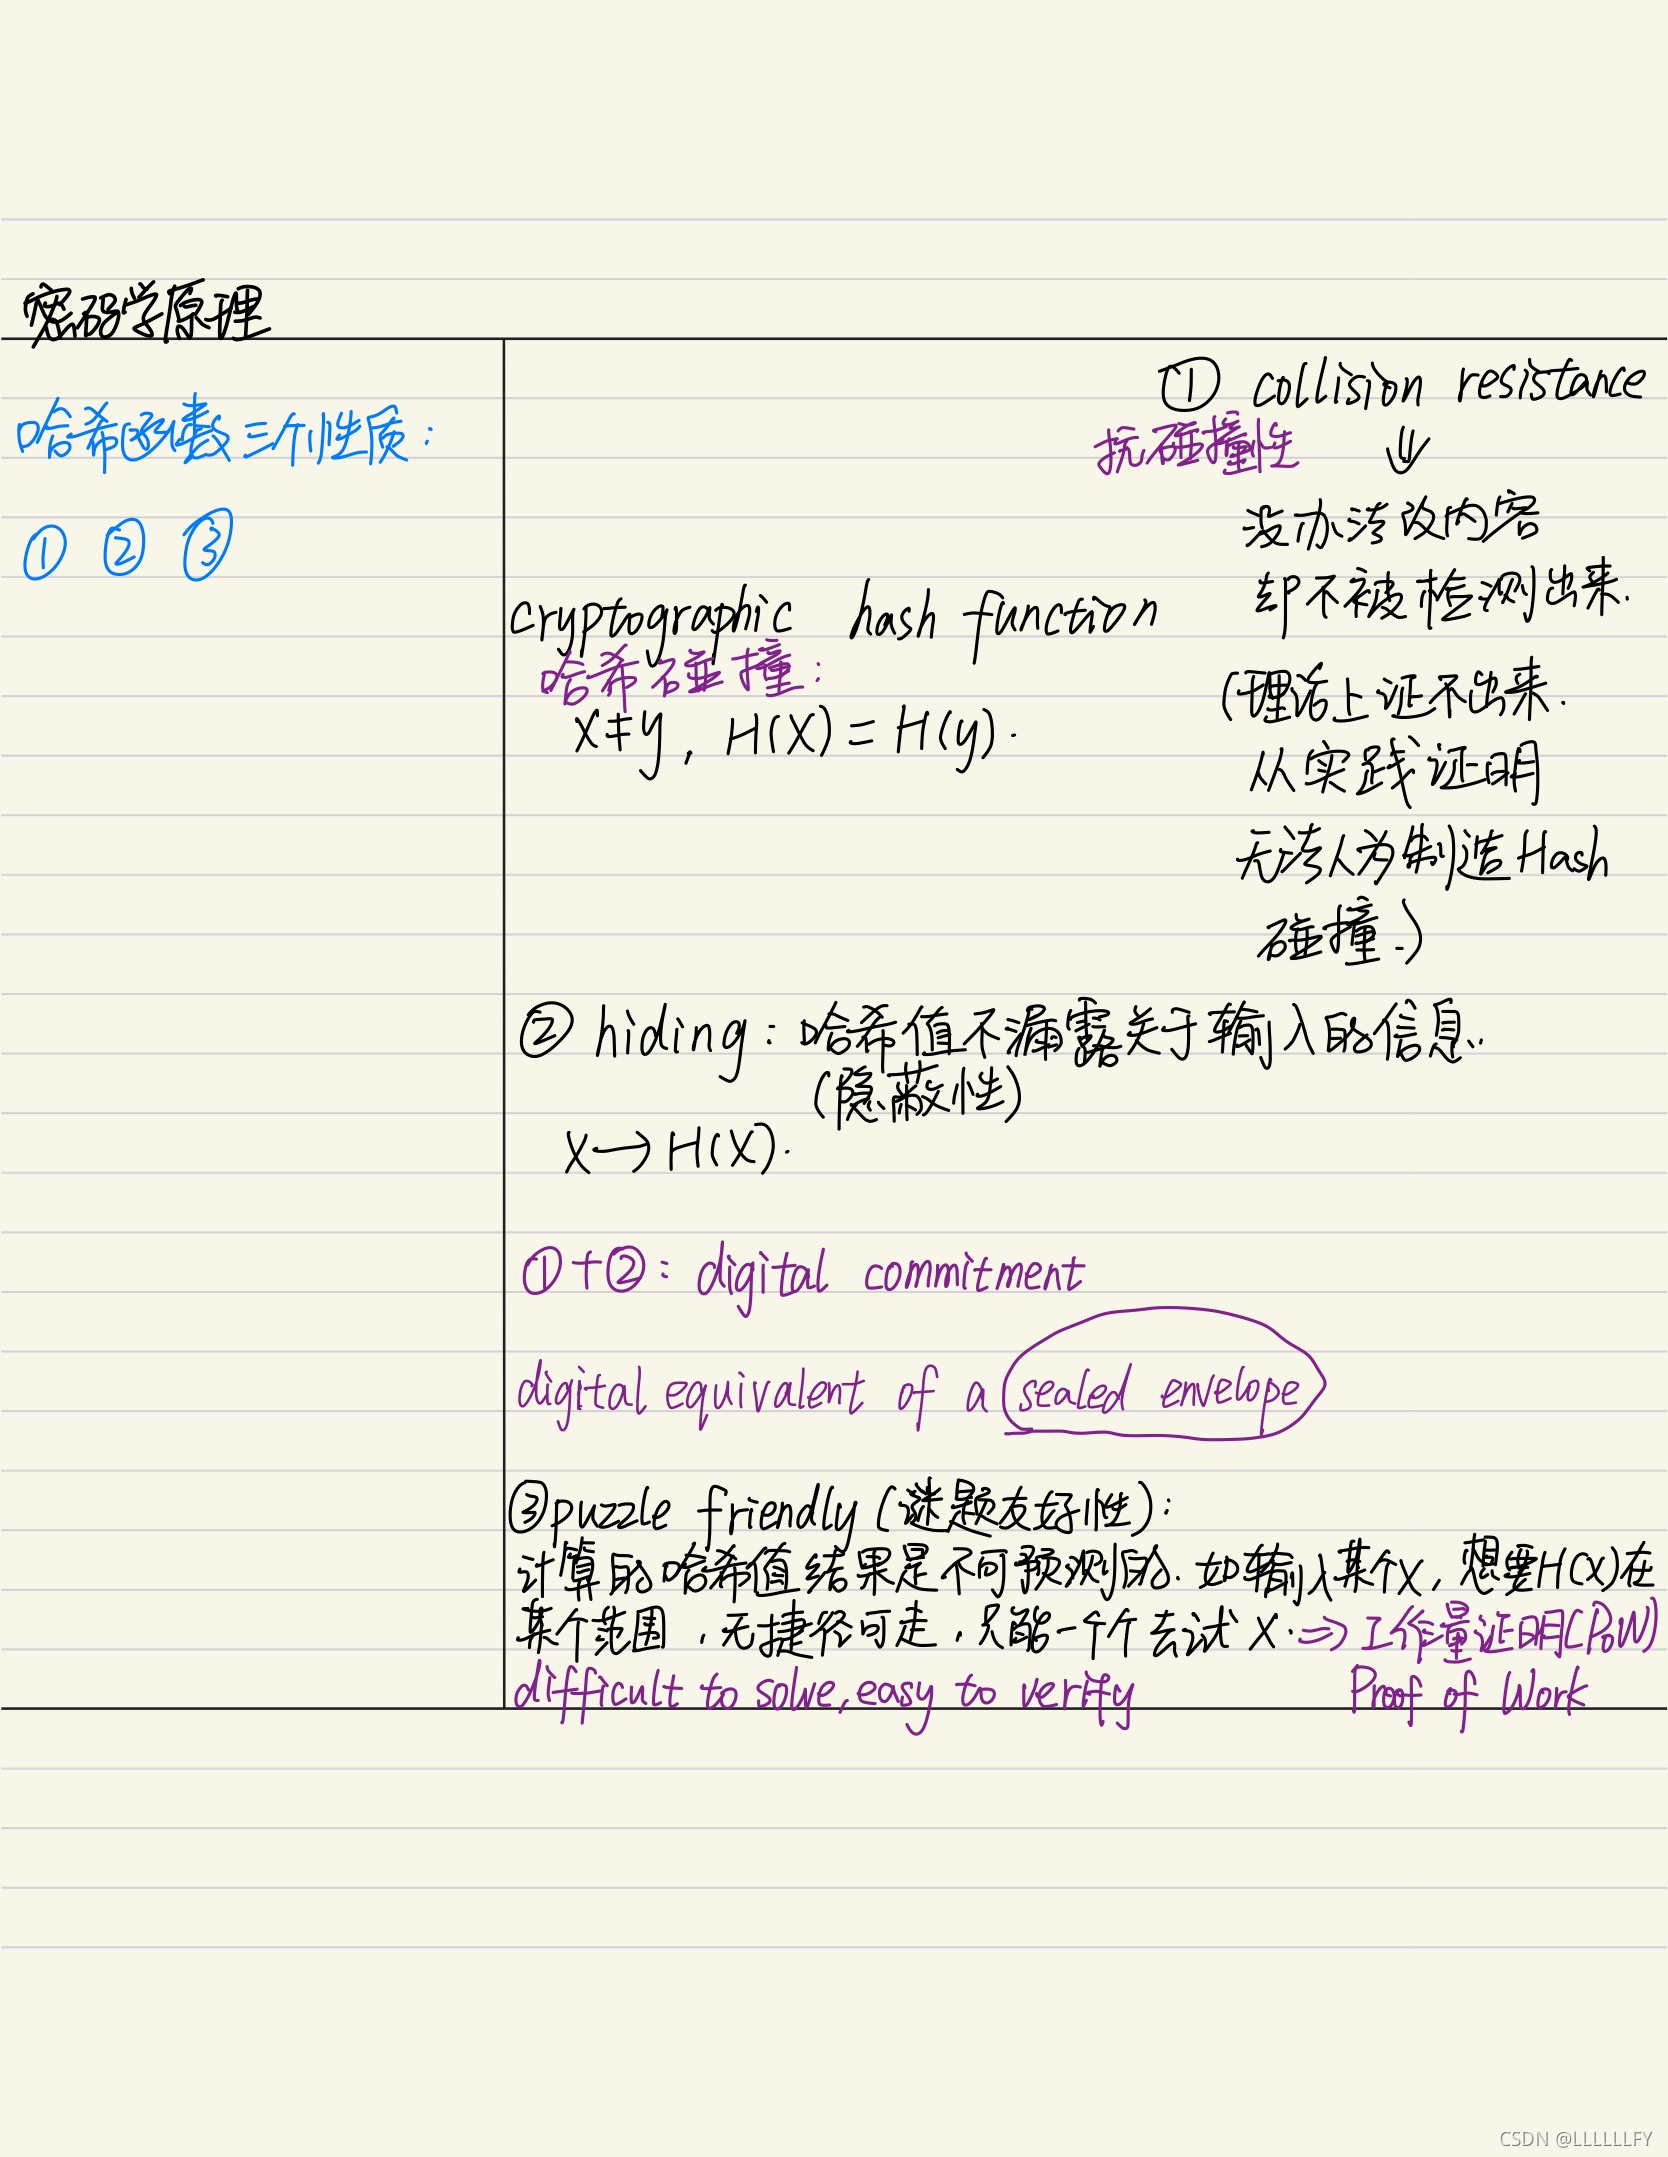 密码学原理
哈希函数三个性质：
① ② ③
① collision resistance
抗碰撞性 ⇓
没办法改内容
却不被检测出来.
cryptographic hash function
哈希碰撞：
x≠y, H(x)=H(y).
(理论上证不出来.
从实践证明
无法人为制造Hash
碰撞.)
② hiding：哈希值不漏露关于输入的信息.
(隐蔽性)
x→H(x).
①+②：digital commitment
digital equivalent of a sealed envelope
③puzzle friendly (谜题友好性)：
计算的哈希值结果是不可预测的. 如输入某个x, 想要H(x)在
某个范围，无捷径可走，只能一个个去试x. ⇒ 工作量证明(PoW)
difficult to solve, easy to verify Proof of Work
CSDN @LLLLLLFY